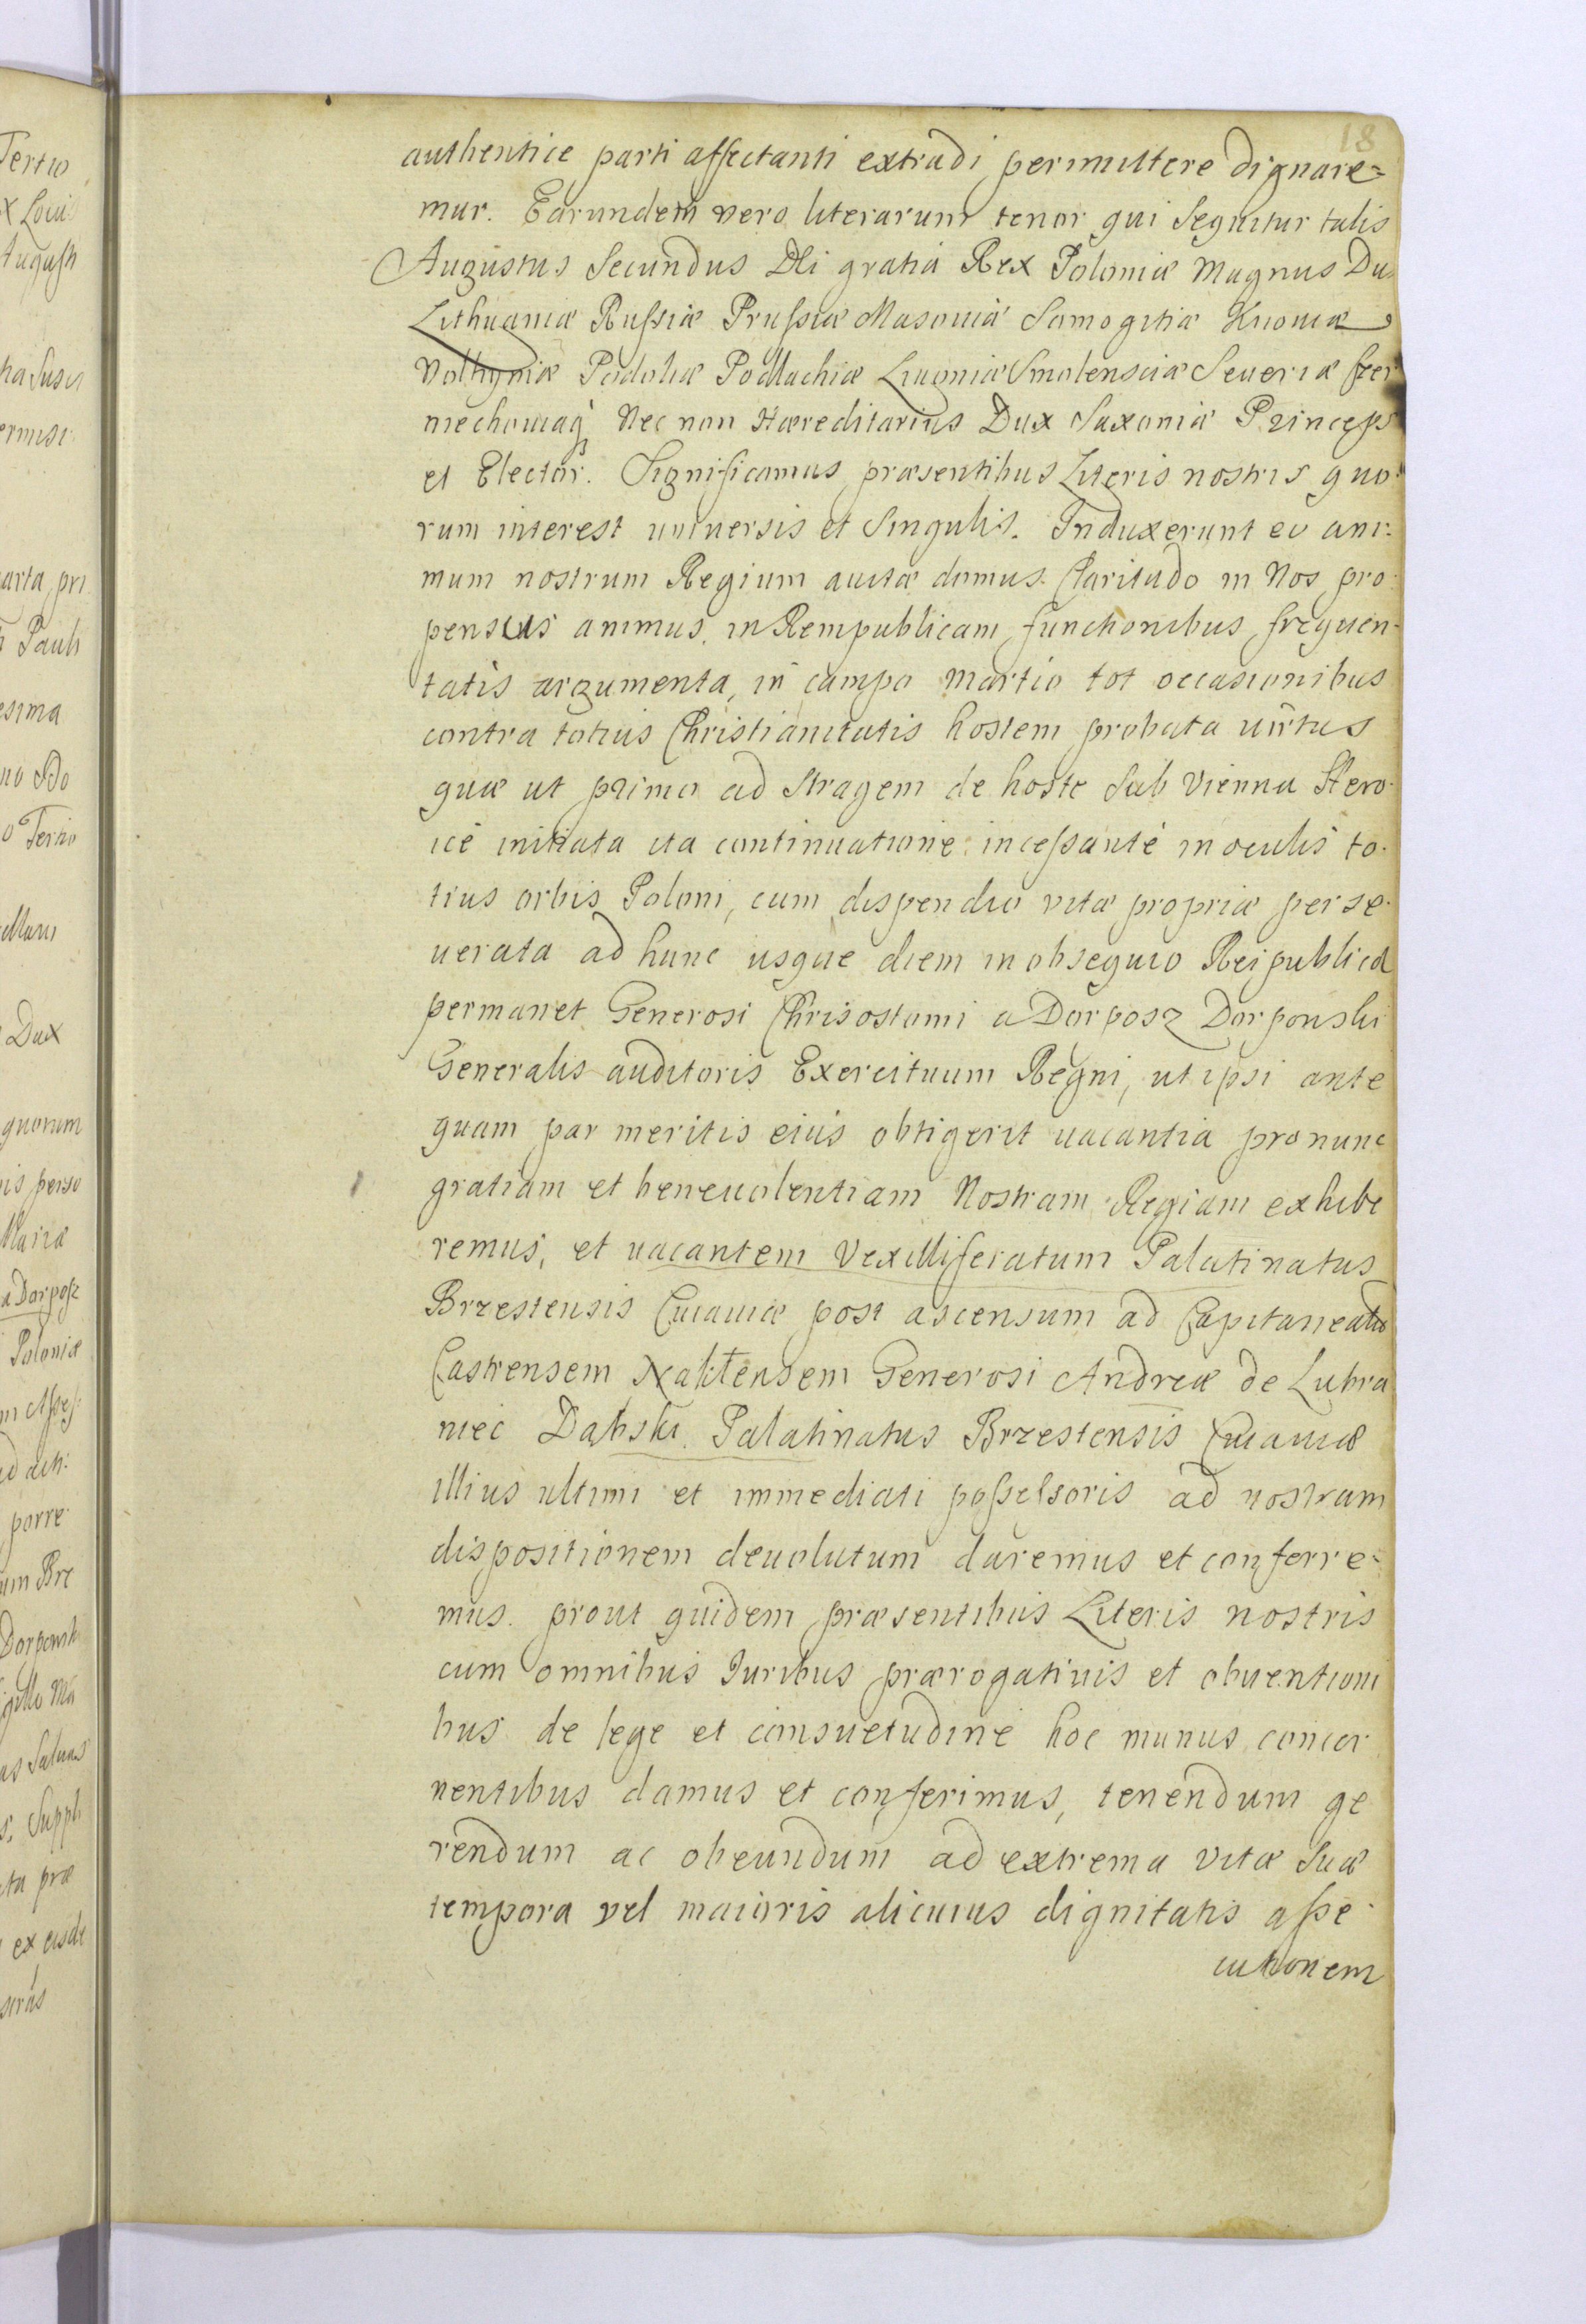 18
authentice parti affectanti extradi permittere dignare=
mur. Earundem vero literarum tenor qui sequitur talis
Augustus Secundus Dei gratiá Rex Poloniæ Magnus Du
Lithuaniæ Russiæ Prussiæ Masouiæ Samogitiæ Kiiouiæ
Volhyniæ Podoliæ Podlachiæ Liuoniæ Smolensciæ Seueriæ Czer
niechouiaq́ Nec non Hæreditarius Dux Saxoniæ Princeps
et Elector. Significamus præsentibus Literis nostris quo-
rum interest uniuersis et Singulis. Induxerunt eo ani-
mum nostrum Regium auitæ domus Claritudo in Nos pro-
pensus animus, in Rempublicam functionibus frequen-
tatis argumenta, in campo Martio tot occasionibus
contra totius Christianitatis hostem probata uirtus
quæ ut primo ad Stragem de hoste Sub Vienna Hero-
icé initiata ita continuatione incessanté in oculis to-
tius orbis Poloni, cum dispendio vitæ propriæ perse-
uerata ad hunc usque diem in obsequio Reipublicæ
permanet Generosi Chrisostomi a Dorposz Dorpowski
Generalis auditoris Exercituum Regni, ut ipsi ante
quam par meritis eius obtigerit uacantia pro nunc
gratiam et beneuolentiam Nostram Regiam exhibe
remus, et uacantem Vexilliferatum Palatinatus
Brzestensis Cuiauiæ post ascensum ad Capitaneatū
Castrensem Naklensem Generosi Andreæ de Lubra
niec Dąbski Palatinatus Brzestensis Cuiauiæ
illius ultimi et immediati possessoris ad nostram
dispositionem deuolutum daremus et conferre-
mus. prout quidem præsentibus Literis nostris
cum omnibus Juribus prærogatiuis et obuentioni
bus de lege et consuetudine hoc munus concer
nentibus damus et conferimus, tenendum ge
rendum ac obeundum ad extrema vitæ Suæ
tempora vel maioris alicuius dignitatis asse-
cutionem